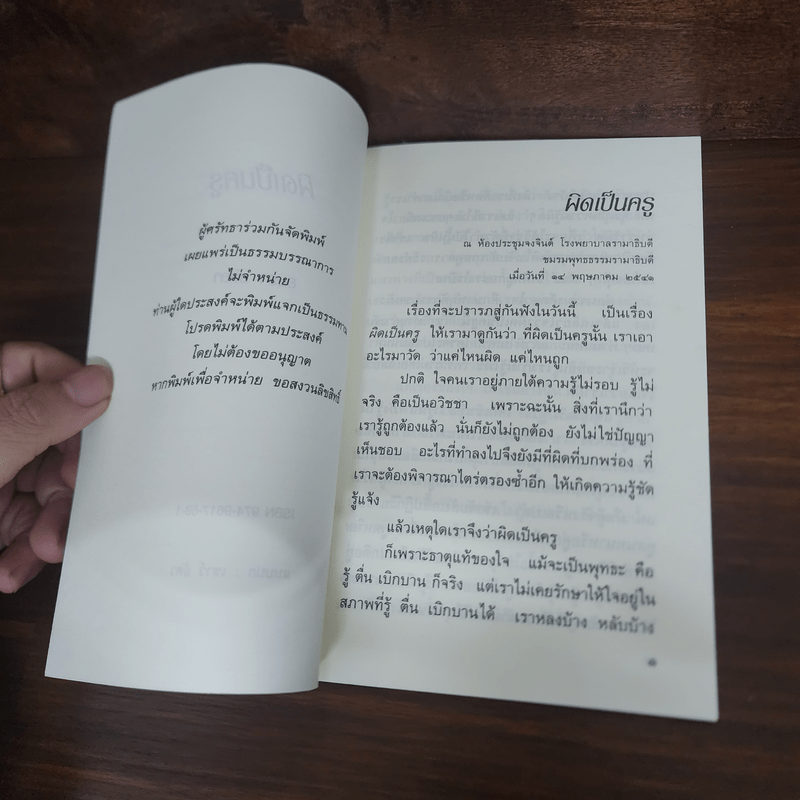 ผู้ศรัทธาร่วมกันจัดพิมพ์
เผยแพร่เป็นธรรมบรรณาการ
ไม่จำหน่าย
ท่านผู้ใดประสงค์จะพิมพ์แจกเป็นธรรมทาน
โปรดพิมพ์ได้ตามประสงค์
โดยไม่ต้องขออนุญาต
หากพิมพ์เพื่อจำหน่าย ขอสงวนลิขสิทธิ์
ผิดเป็นครู
ณ ห้องประชุมจงจินต์ โรงพยาบาลรามาธิบดี
ชมรมพุทธธรรมรามาธิบดี
เมื่อวันที่ ๑๔ พฤษภาคม ๒๕๔๑
เรื่องที่จะปรารภสู่กันฟังในวันนี้ เป็นเรื่อง
ผิดเป็นครู ให้เรามาดูกันว่า ที่ผิดเป็นครูนั้น เราเอา
อะไรมาวัด ว่าแค่ไหนผิด แค่ไหนถูก
ปกติ ใจคนเราอยู่ภายใต้ความรู้ไม่รอบ รู้ไม่
จริง คือเป็นอวิชชา เพราะฉะนั้น สิ่งที่เรานึกว่า
เรารู้ถูกต้องแล้ว นั่นก็ยังไม่ถูกต้อง ยังไม่ใช่ปัญญา
เห็นชอบ อะไรที่ทำลงไปจึงยังมีที่ผิดที่บกพร่อง ที่
เราจะต้องพิจารณาไตร่ตรองซ้ำอีก ให้เกิดความรู้ชัด
รู้แจ้ง
แล้วเหตุใดเราจึงว่าผิดเป็นครู
ก็เพราะธาตุแท้ของใจ แม้จะเป็นพุทธะ คือ
รู้ ตื่น เบิกบาน ก็จริง แต่เราไม่เคยรักษาให้ใจอยู่ใน
สภาพที่รู้ ตื่น เบิกบานได้ เราหลงบ้าง หลับบ้าง
๑